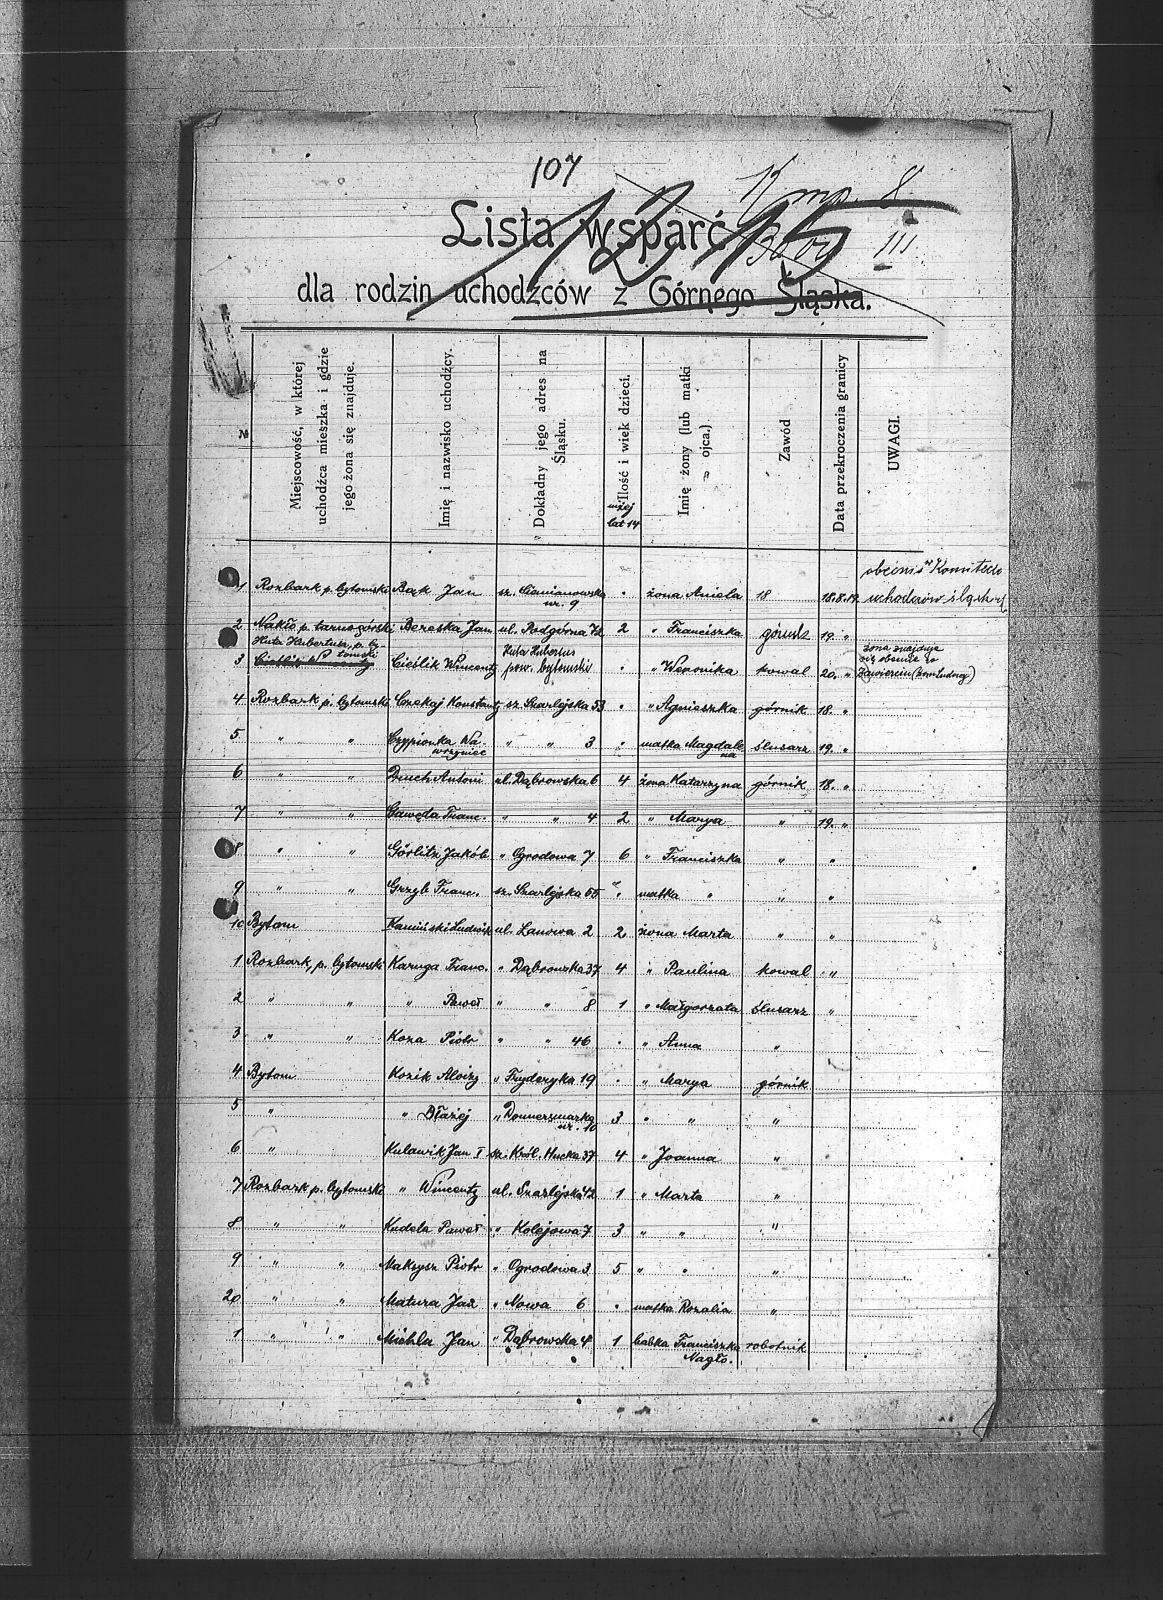 107
Lista wsparć
12 15
8
III
dla rodzin uchodźców z Górnego Śląska.
№ Miejscowość, w której uchodźca mieszka i gdzie jego żona się znajduje. Imię i nazwisko uchodźcy. Dokładny jego adres na Śląsku. Ilość i wiek dzieci. niżej lat 14 Imię żony (lub matki ojca.) Zawód Data przekroczenia granicy UWAGI.
1 Rozbark p. bytomski Bąk Jan sz. Siemianowska nr. 9 " żona Aniela 18 18.8.19. obecnie w Komitecie uchodźców
2 Nakło p. tarnogórski Bereska Jan ul. Podgórna 72 2 " Franciszka górnik 19. "
3 Huta Hubertus, p. bytomski Cieślik Wincenty Huta Hubertus pow. bytomski " " Weronika kowal 20. " żona znajduje się obecnie w Zawierciu
4 Rozbark p. bytomski Czekaj Konstanty sz. Szarlejska 53 " " Agnieszka górnik 18. "
5 " " Czypionka Wawrzyniec " " 3 " matka Magdalena ślusarz 19. "
6 " " Antoni ul. Dąbrowska 6 4 żona Katarzyna górnik 18. "
7 " " Gawęda Franc. " " 4 2 " Marya " 19. "
8 " " Görlitz Jakób " Ogrodowa 7 6 " Franciszka " "
9 " " Grzyb Franc. sz. Szarlejska 55 " matka " " "
10 Bytom Kamiński Ludwik ul. Łanowa 2 2 żona Marta " "
1 Rozbark, p. bytomski Karuga Franc. " Dąbrowska 37 4 " Paulina kowal "
2 " " " Paweł " " 8 1 " Małgorzata ślusarz "
3 " " Koza Piotr " " 46 " " Anna "
4 Bytom Kozik Aloizy " Fryderyka 19 " " Marya górnik
5 " " Błażej " Donnersmarka nr. 10 3 " " "
6 " Kulawik Jan I sz. Król. Hucka 37 4 " Joanna "
7 Rozbark p. bytomski " Wincenty ul. Szarlejska 42 1 " Marta "
8 " " Kudela Paweł " Kolejowa 7 3 " " "
9 " " Maksysz Piotr " Ogrodowa 3 5 " " "
20 " " Matura Jan " Nowa 6 " matka Rozalia "
1 " " Michla Jan " Dąbrowska 4 1 babka Franciszka Nagło. robotnik